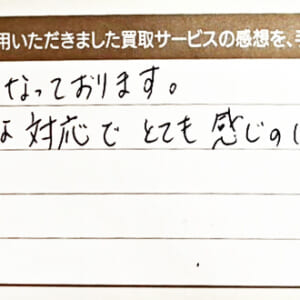 用いただきました買取サービスの感想を、
なっております。
な対応でとても感じの